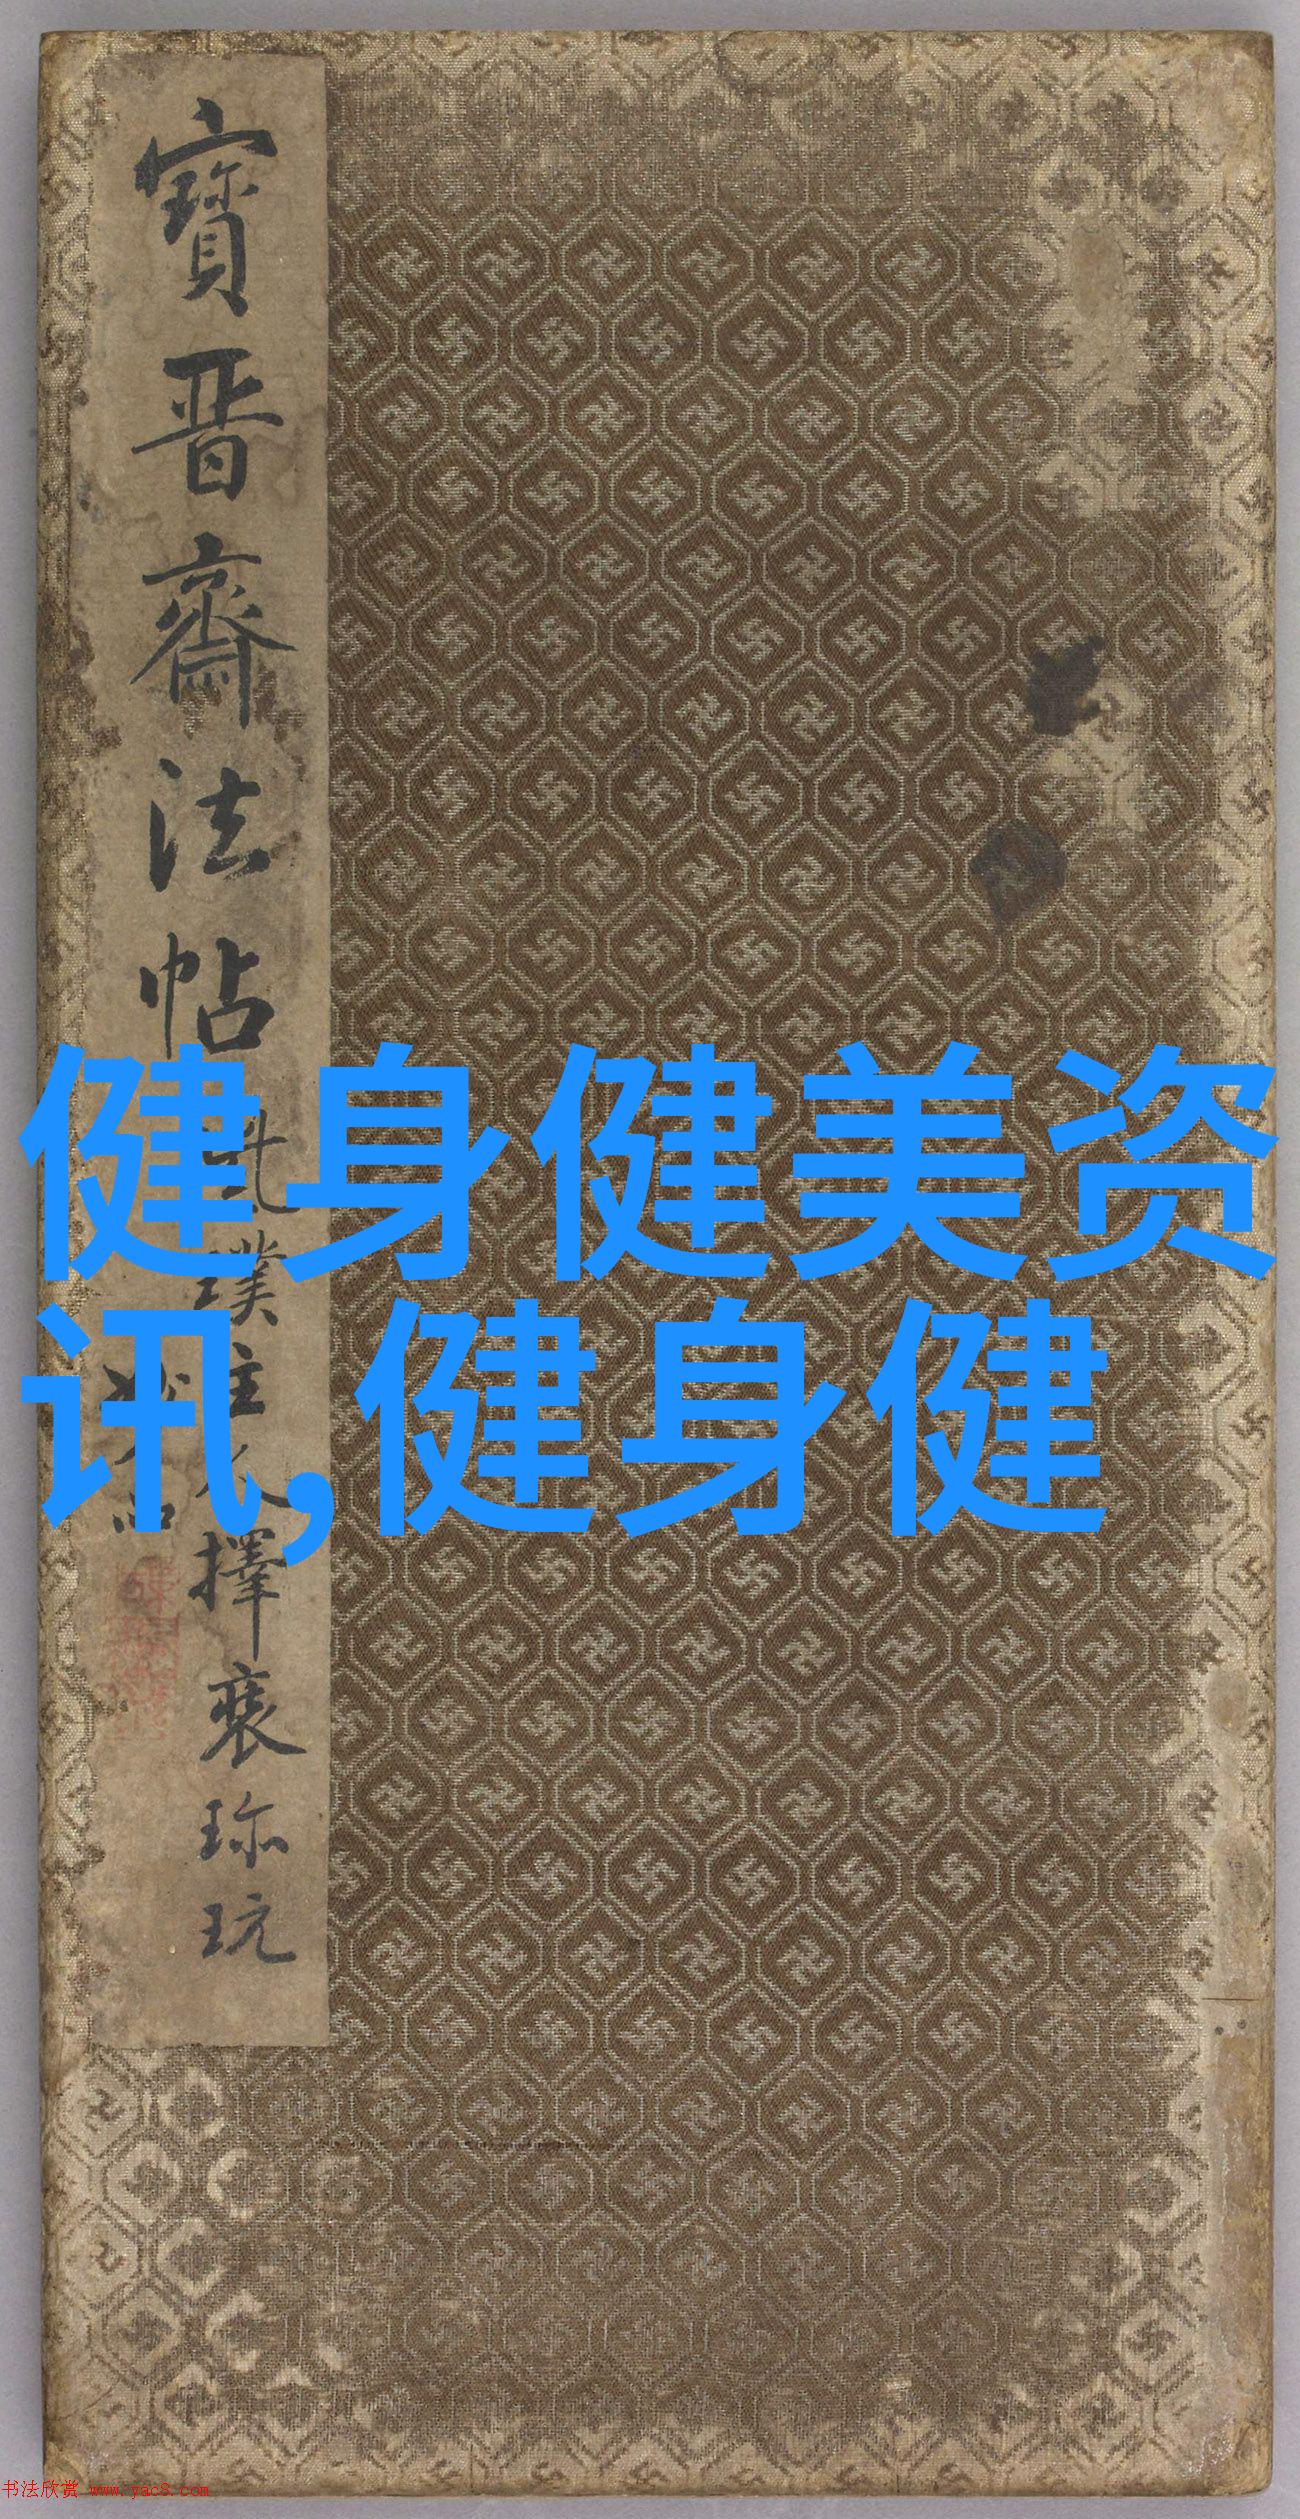 寶晉齋法帖
璞主人擇裘珎玩
健身健美资
讯,健身健
书法欣赏 www.yac8.com